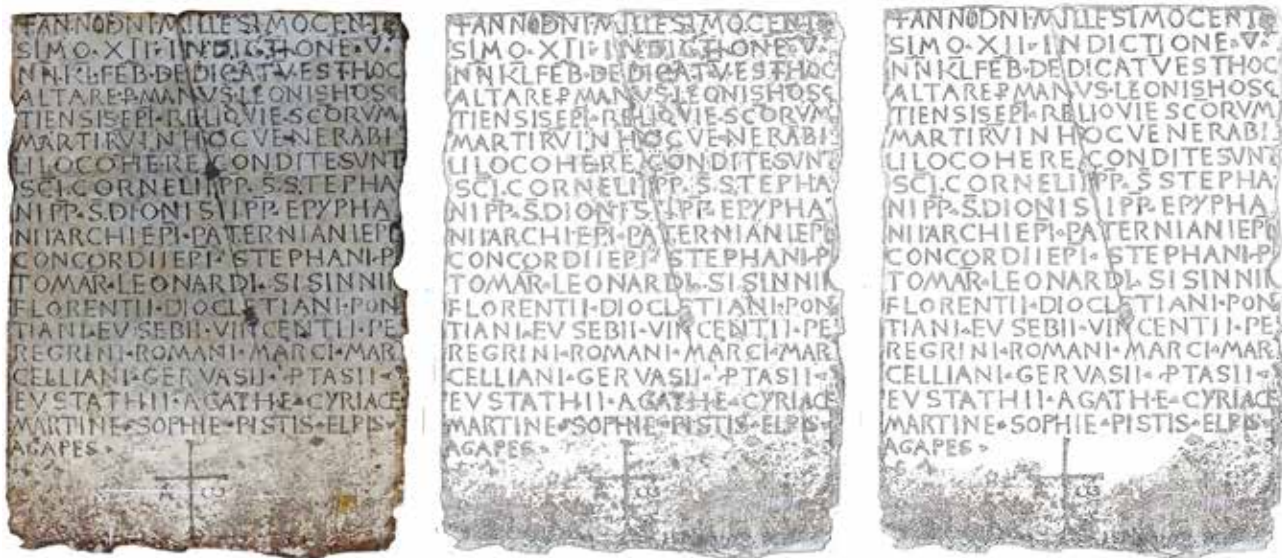 +ANNODNI·MILLESIMO·CENTE
SIMO·XII·INDICTIONE·V·
NN̅KLFEB·DEDICATVESTHOC
ALTAREPMANVS·LEONISHOS
TIENSISEPI·RELIQVIESCORVM
MARTIRVINHOCVENERABI
LILOCOHERECONDITESVNT
SCI·CORNELIIPP·S·STEPHA
NIPP·S·DIONISIIPP·EPYPHA
NIIARCHIEPI·PATERNIANIEPI
CONCORDIIEPI·STEPHANI·P
TOMAR·LEONARDI·SISINNII
FLORENTII·DIOCLETIANI·PON
TIANI·EVSEBII·VINCENTII·PE
REGRINI·ROMANI·MARCI·MAR
CELLIANI·GERVASII·PTASII·
EVSTATHII·AGATHE·CYRIACE
MARTINE·SOPHIE·PISTIS·ELPIS·
AGAPES·
A ω
+ANNODNI·MILLESIMO·CENTE
SIMO·XII·INDICTIONE·V·
NN̅KLFEB·DEDICATVESTHOC
ALTAREPMANVS·LEONISHOS
TIENSISEPI·RELIQVIESCORVM
MARTIRVINHOCVENERABI
LILOCOHERECONDITESVNT
SCI·CORNELIIPP·S·STEPHA
NIPP·S·DIONISIIPP·EPYPHA
NIIARCHIEPI·PATERNIANIEPI
CONCORDIIEPI·STEPHANI·P
TOMAR·LEONARDI·SISINNII
FLORENTII·DIOCLETIANI·PON
TIANI·EVSEBII·VINCENTII·PE
REGRINI·ROMANI·MARCI·MAR
CELLIANI·GERVASII·PTASII·
EVSTATHII·AGATHE·CYRIACE
MARTINE·SOPHIE·PISTIS·ELPIS·
AGAPES·
A ω
+ANNODNI·MILLESIMO·CENTE
SIMO·XII·INDICTIONE·V·
NN̅KLFEB·DEDICATVESTHOC
ALTAREPMANVS·LEONISHOS
TIENSISEPI·RELIQVIESCORVM
MARTIRVINHOCVENERABI
LILOCOHERECONDITESVNT
SCI·CORNELIIPP·S·STEPHA
NIPP·S·DIONISIIPP·EPYPHA
NIIARCHIEPI·PATERNIANIEPI
CONCORDIIEPI·STEPHANI·P
TOMAR·LEONARDI·SISINNII
FLORENTII·DIOCLETIANI·PON
TIANI·EVSEBII·VINCENTII·PE
REGRINI·ROMANI·MARCI·MAR
CELLIANI·GERVASII·PTASII·
EVSTATHII·AGATHE·CYRIACE
MARTINE·SOPHIE·PISTIS·ELPIS·
AGAPES·
A ω